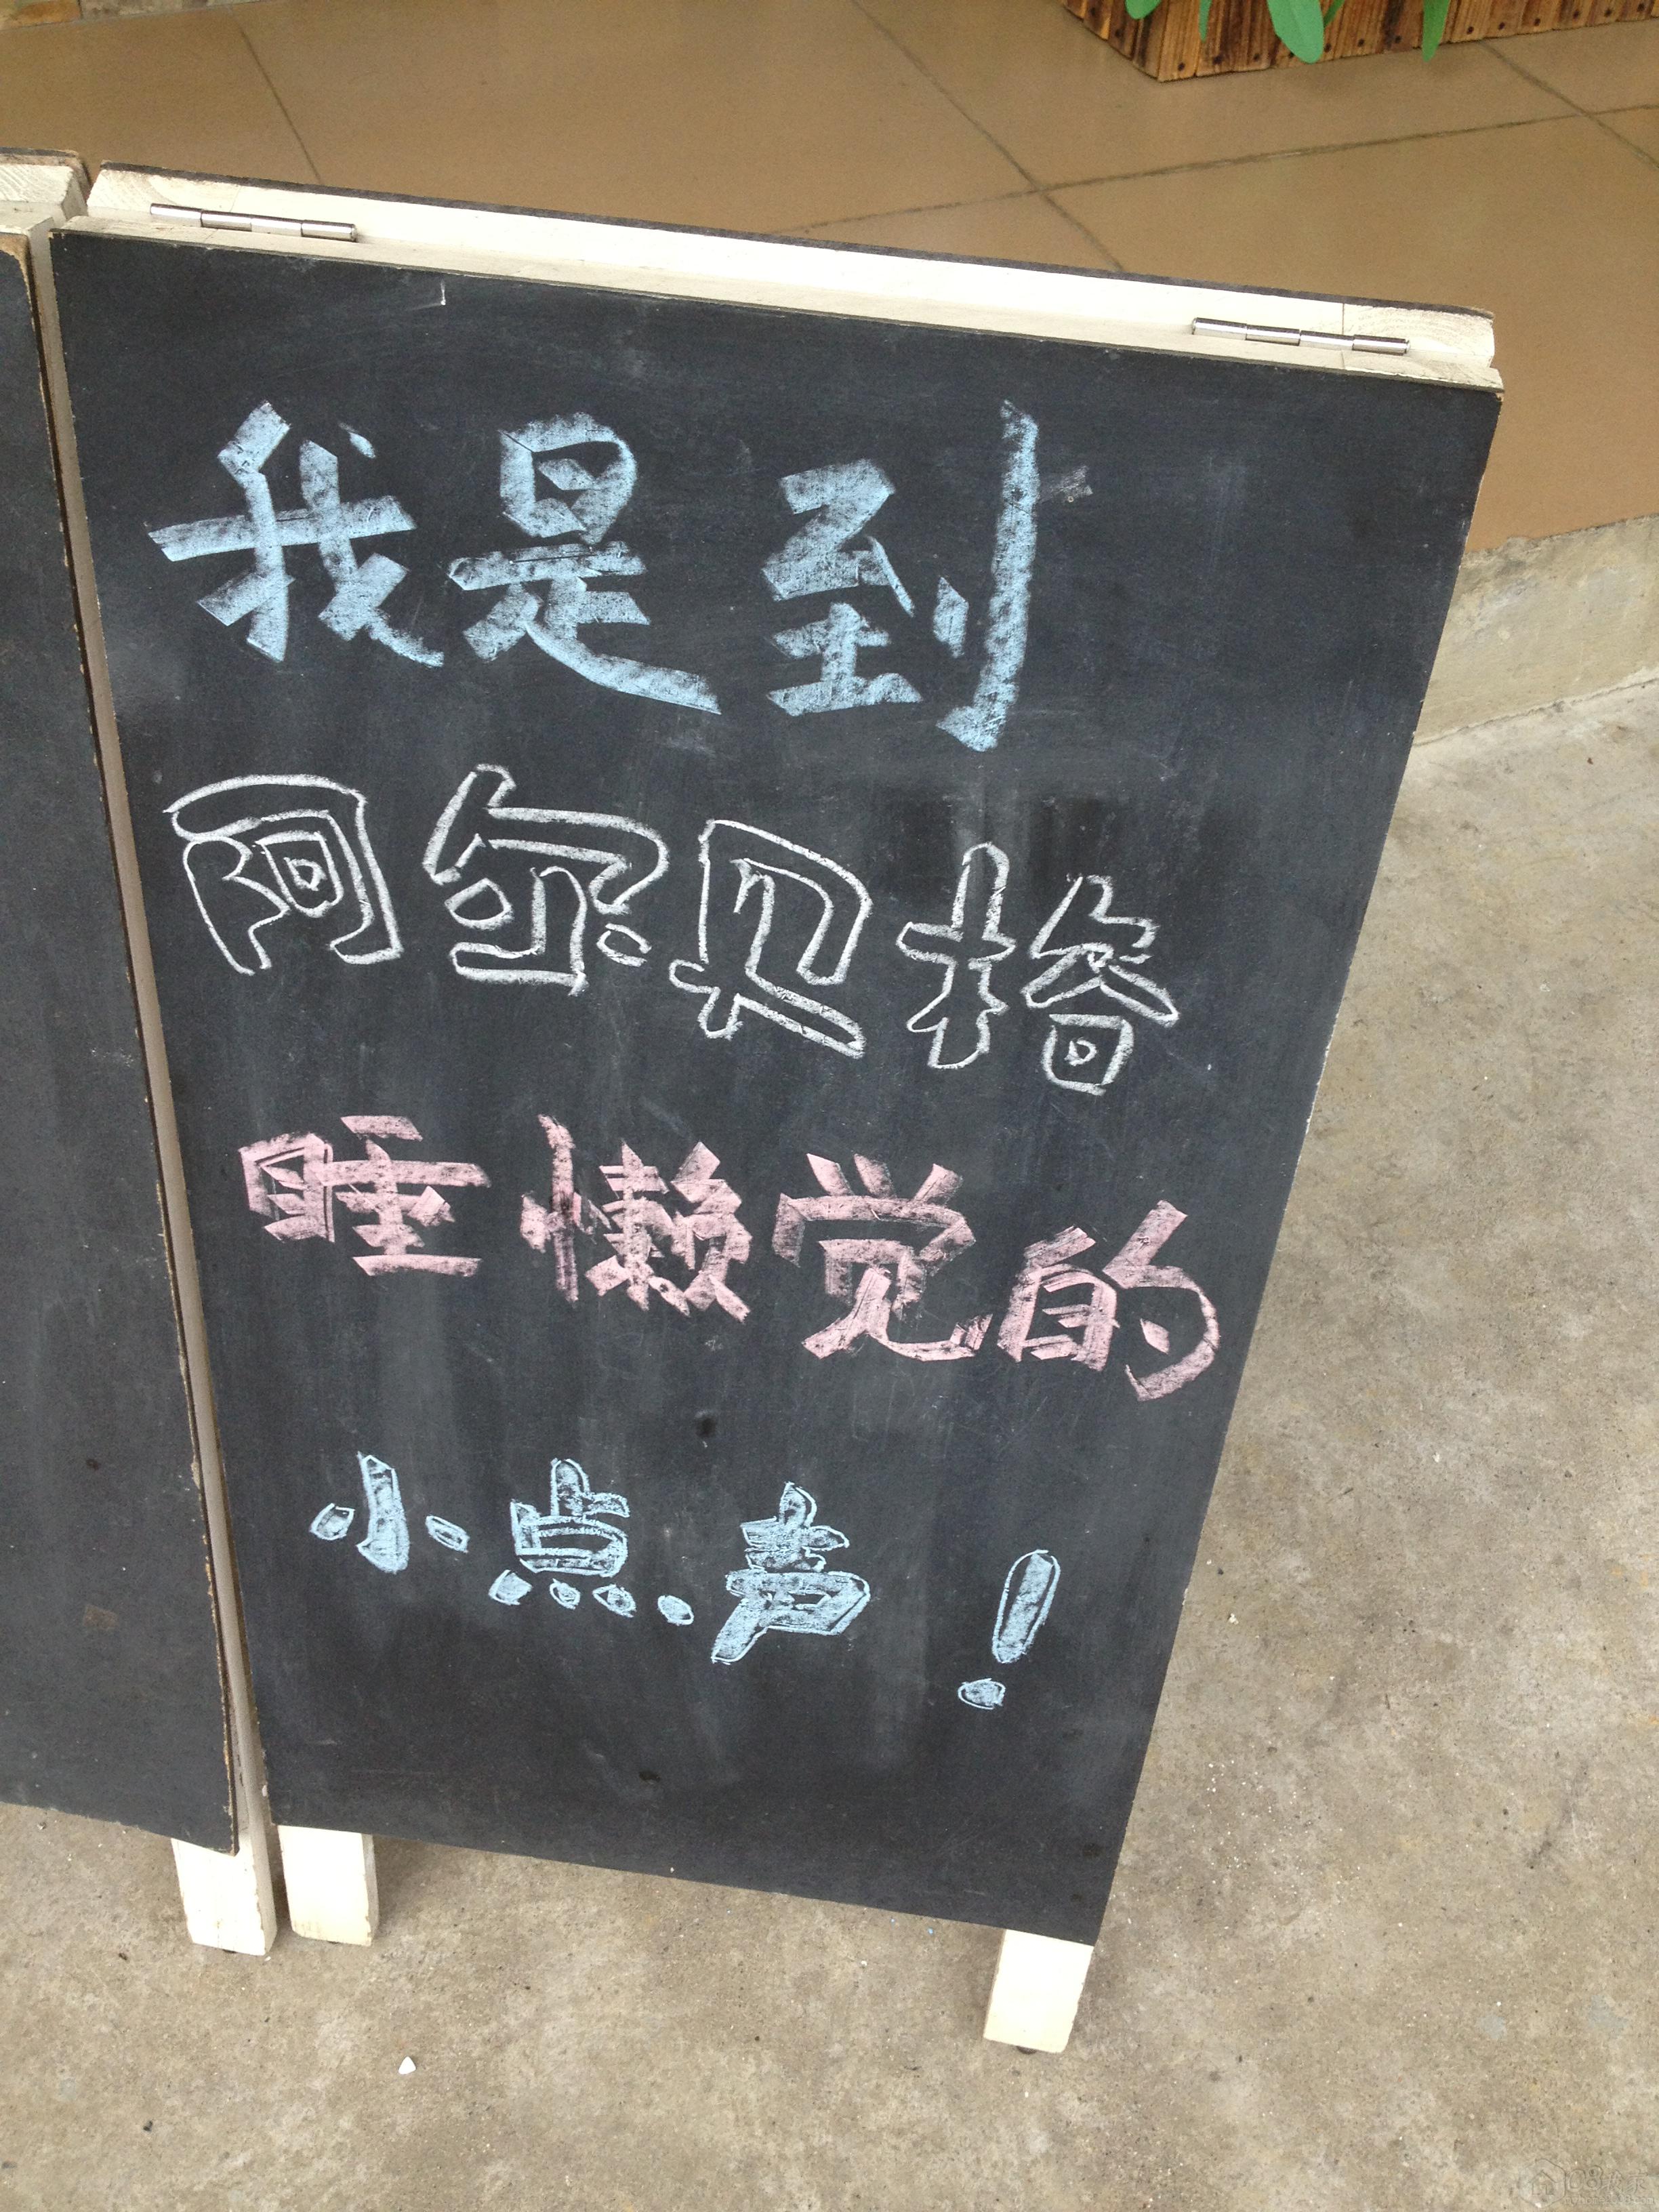 我是到
阿尔贝格
睡懒觉的
小点声！